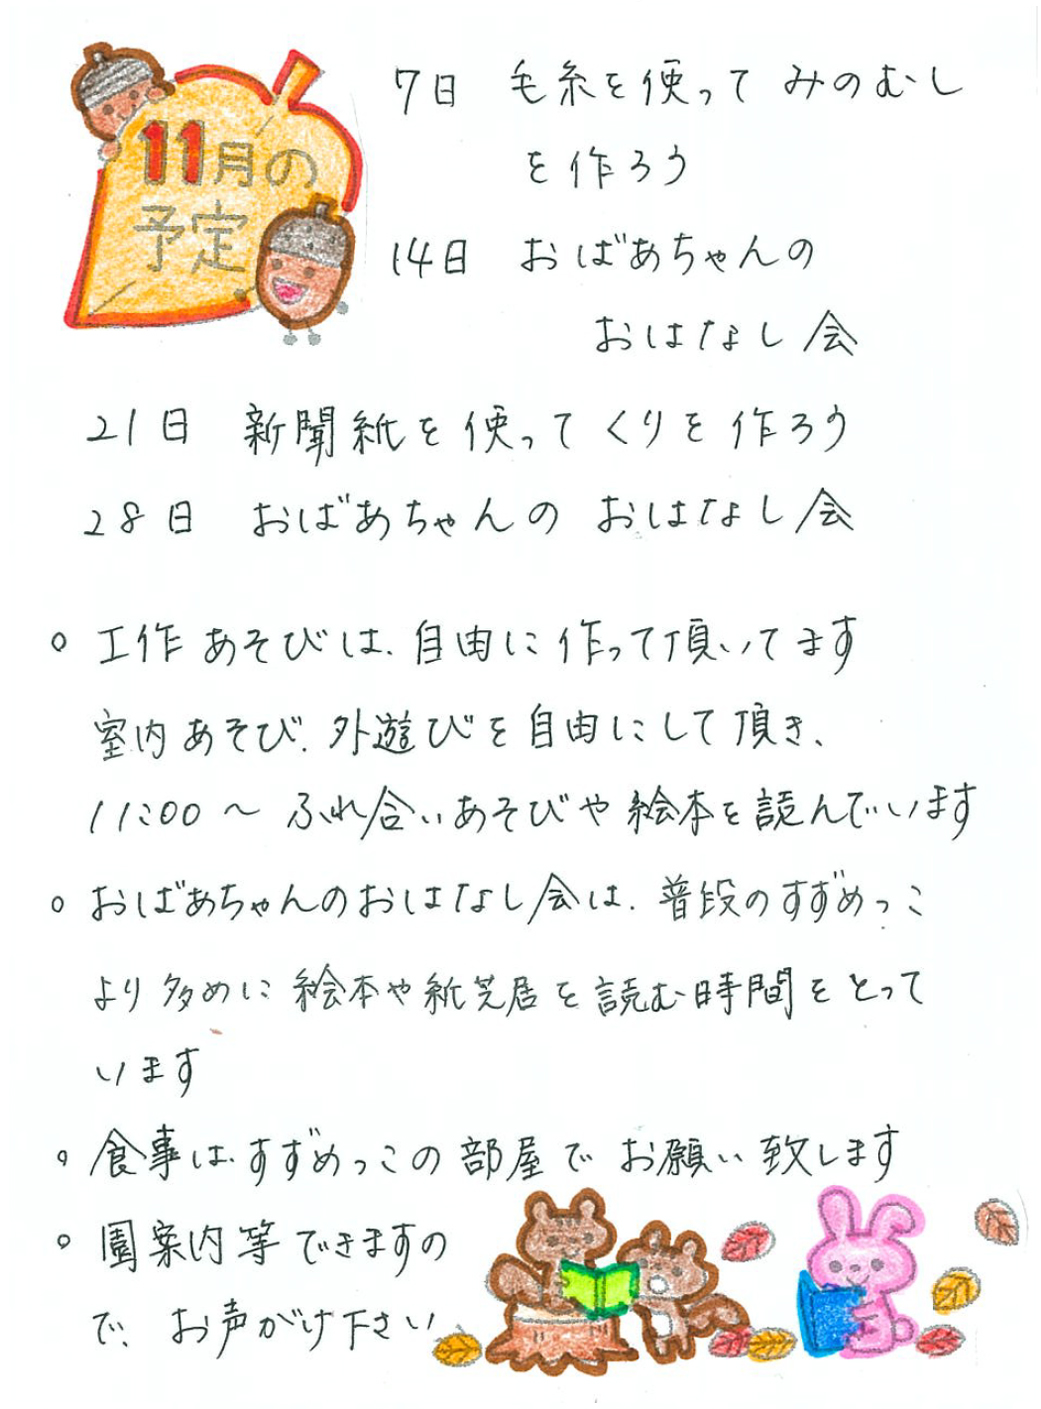 11月の
予定
7日 毛糸を使って みのむし
を作ろう
14日 おばあちゃんの
おはなし会
21日 新聞紙を使ってくりを作ろう
28日 おばあちゃんの おはなし会
○ 工作あそびは、自由に作って頂いてます
室内あそび、外遊びを自由にして頂き、
11:00 ～ ふれ合いあそびや絵本を読んでいます
○ おばあちゃんのおはなし会は、普段のすずめっこ
より多めに絵本や紙芝居を読む時間をとって
います
○ 食事は、すずめっこの部屋で お願い致します
○ 園案内等できますの
で、お声がけ下さい